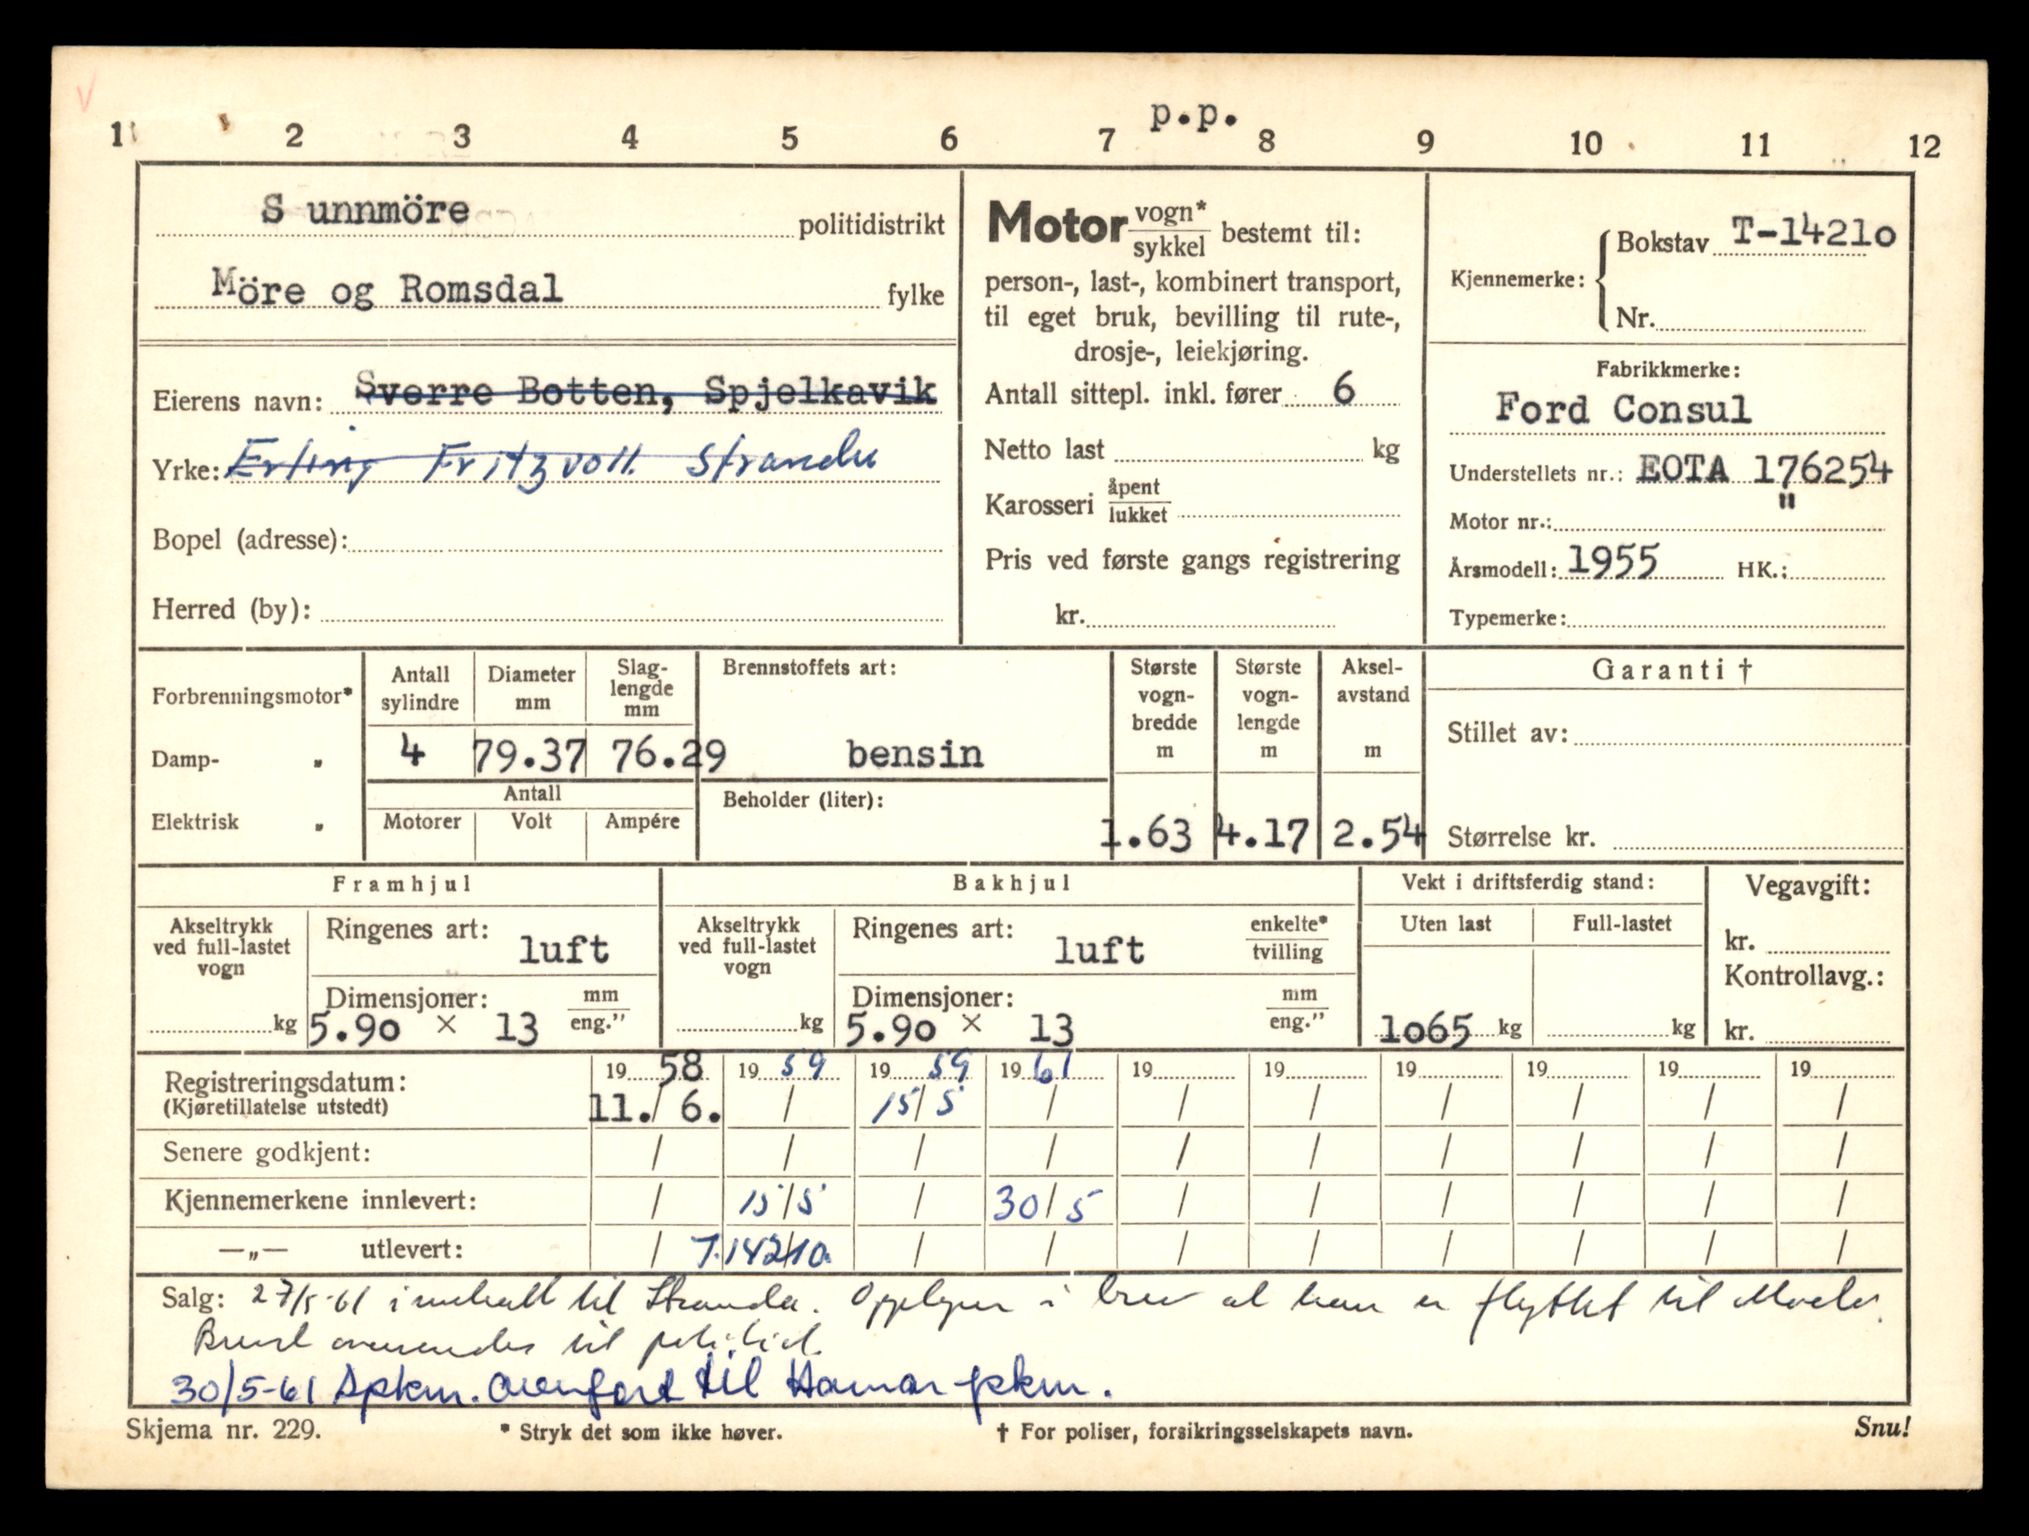 V
p.p.
1 2 3 4 5 6 7 8 9 10 11 12
S unnmöre politidistrikt
Möre og Romsdal fylke
Eierens navn: Sverre Botten, Spjelkavik
Yrke: Erling Fritzvoll Stranda
Bopel (adresse):
Herred (by):
Motor vogn*
sykkel bestemt til:
person-, last-, kombinert transport,
til eget bruk, bevilling til rute-,
drosje-, leiekjøring.
Antall sittepl. inkl. fører 6
Netto last kg
Karosseri åpent
lukket
Pris ved første gangs registrering
kr.
Kjennemerke: Bokstav T-14210
Nr.
Fabrikkmerke:
Ford Consul
Understellets nr.: EOTA 176254
Motor nr.: "
Årsmodell: 1955 HK.:
Typemerke:
Forbrenningsmotor*
Damp- "
Elektrisk "
Antall sylindre
Diameter mm
Slag-lengde mm
4 79.37 76.29
Antall
Motorer Volt Ampére
Brennstoffets art:
bensin
Beholder (liter):
Største vogn-bredde m
1.63
Største vogn-lengde m
4.17
Aksel-avstand m
2.54
Garanti †
Stillet av:
Størrelse kr.
Framhjul
Akseltrykk ved full-lastet vogn
kg
Ringenes art: luft
Dimensjoner: mm
5.90 × 13 eng."
Bakhjul
Akseltrykk ved full-lastet vogn
kg
Ringenes art: luft enkelte*
tvilling
Dimensjoner: mm
5.90 × 13 eng."
Vekt i driftsferdig stand:
Uten last Full-lastet
1065 kg kg
Vegavgift:
kr.
Kontrollavg.:
kr.
19 58 19 59 19 59 19 61 19 19 19 19 19 19
Registreringsdatum:
(Kjøretillatelse utstedt) 11./6. / 15/5 / / / / / / /
Senere godkjent: / / / / / / / / / /
Kjennemerkene innlevert: / 15/5 / 30/5 / / / / / /
—„— utlevert: / T.14210. / / / / / / / /
Salg: 27/5-61 til Stranda. Opplyser i brev at han er flyttet til Moelv.
Brevet oversendes til politiet.
30/5-61 Spkm. overført til Hamar pkm.
Skjema nr. 229. * Stryk det som ikke høver. † For poliser, forsikringsselskapets navn. Snu!